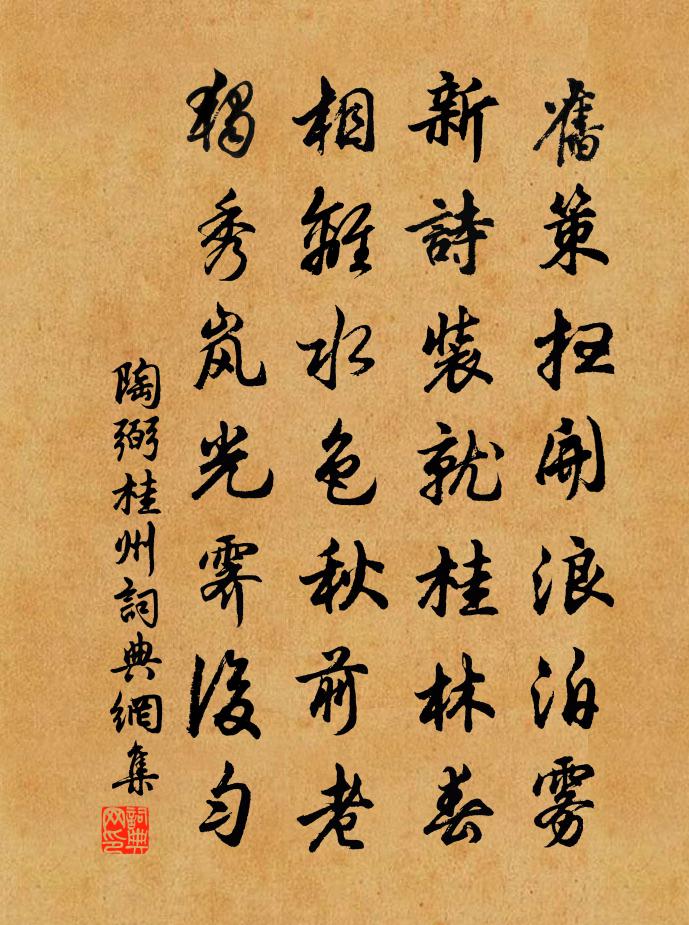 舊策掃開浪泊雾
新詩裝就桂林春
相離水色秋前老
獨秀岚光霽後勻
陶弼桂州詞典網集
詞典网印